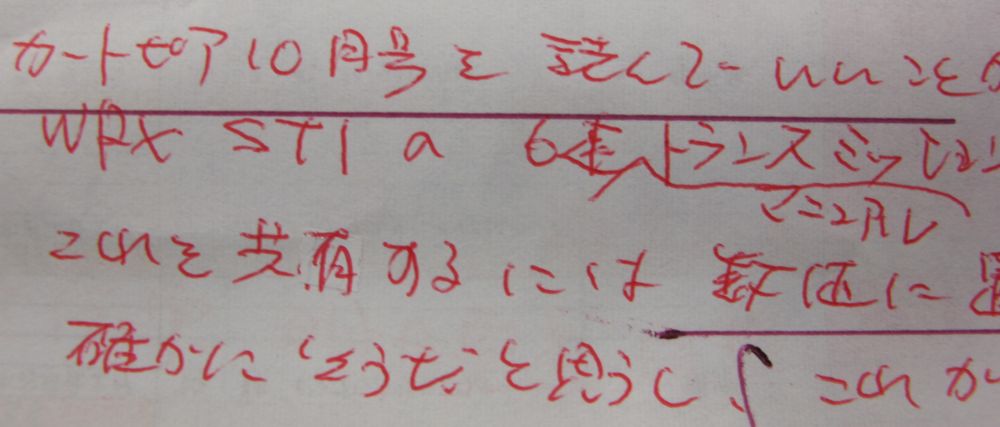 カートピア10月号を読んでいいことが
WRX STIの6速トランスミッション
マニュアル
これを共有するには数値に
確かにそうだと思うし、これか